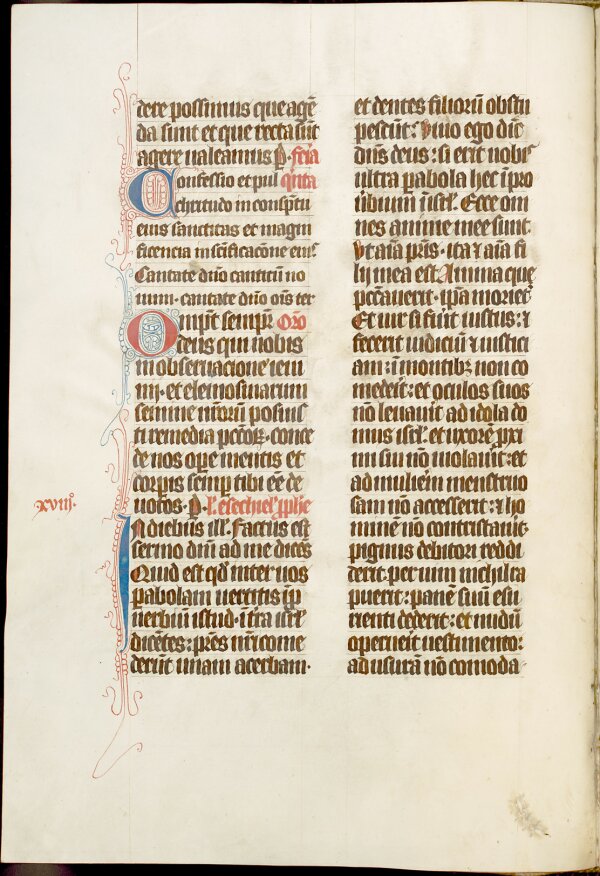 dere possimus que agē
da sunt et que recta sūt
agere ualeamus p̄. feria
Confessio et pul qīnta
chritudo in conspc̄tu
eius sanctitas et magni
ficencia in sc̄ificacōne eiꝰ
Cantate dn̄o canticū no
uum. cantate dn̄o oīs ter
Omīpt̄ sempr̄ Oro
deus qui nobis
in obseruacione ieiu
nij. et elemosinarum
semine nr̄orū posuis
ti remedia pctōꝝ. conce
de nos ope mentis et
corpis semp tibi eē de
uotos. p̄. l'. eẓechiel' ꝓphe
xviijº.
In diebus ill'. Factus est
sermo dn̄i ad me dicēs
Quid est qd̄ inter uos
pabolam uertitis in p
uerbiū istud. ī tra isrl'
dicētes: pr̄es nr̄i come
derūt uuam acerbam.
et dentes filiorū obstu
pescūt: Viuo ego dic̄
dn̄s deus: si erit nobiꝰ
ultra pabola hec ī pro
uibium ī isrl'. Ecce om
nes anime mee sunt.
Vt aīa pr̄is. ita ⁊ aīa fi
lij mea est. Anima que
pccauerit. ipa morietᷣ
Et uir si fūit iustus: ⁊
fecerit iudiciū ⁊ iustici
am: ī montibꝫ non co
mederit: et oculos suos
nō leuauit ad idola do
mus isrl'. et uxorē pxi
mi sui nō uiolauīt: et
ad muliēm menstruo
sam nō accesserit: ⁊ ho
minē nō contristauīt.
pignus debitori reddi
derit. per uim nichil ra
puerit: panē suū esu
rienti dederit: et nudū
operueīt uestimento:
ad usurā nō comoda